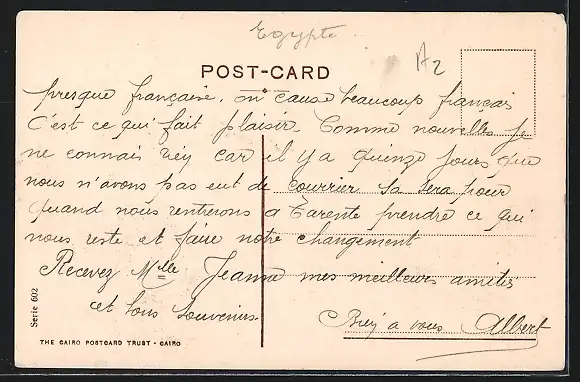 Egypte
A2
POST-CARD
presque française. on cause beaucoup français
C'est ce qui fait plaisir. Comme nouvelles je
ne connais rien car il y a quinze jours que
nous n'avons pas eut de courrier sa sera pour
quand nous rentrerons a Tarente prendre ce qui
nous reste et faire notre changement
Recevez Mlle Jeanne mes meilleurs amitiés
et bons souvenirs.
Bien a vous Albert
Serie 602
THE CAIRO POSTCARD TRUST - CAIRO